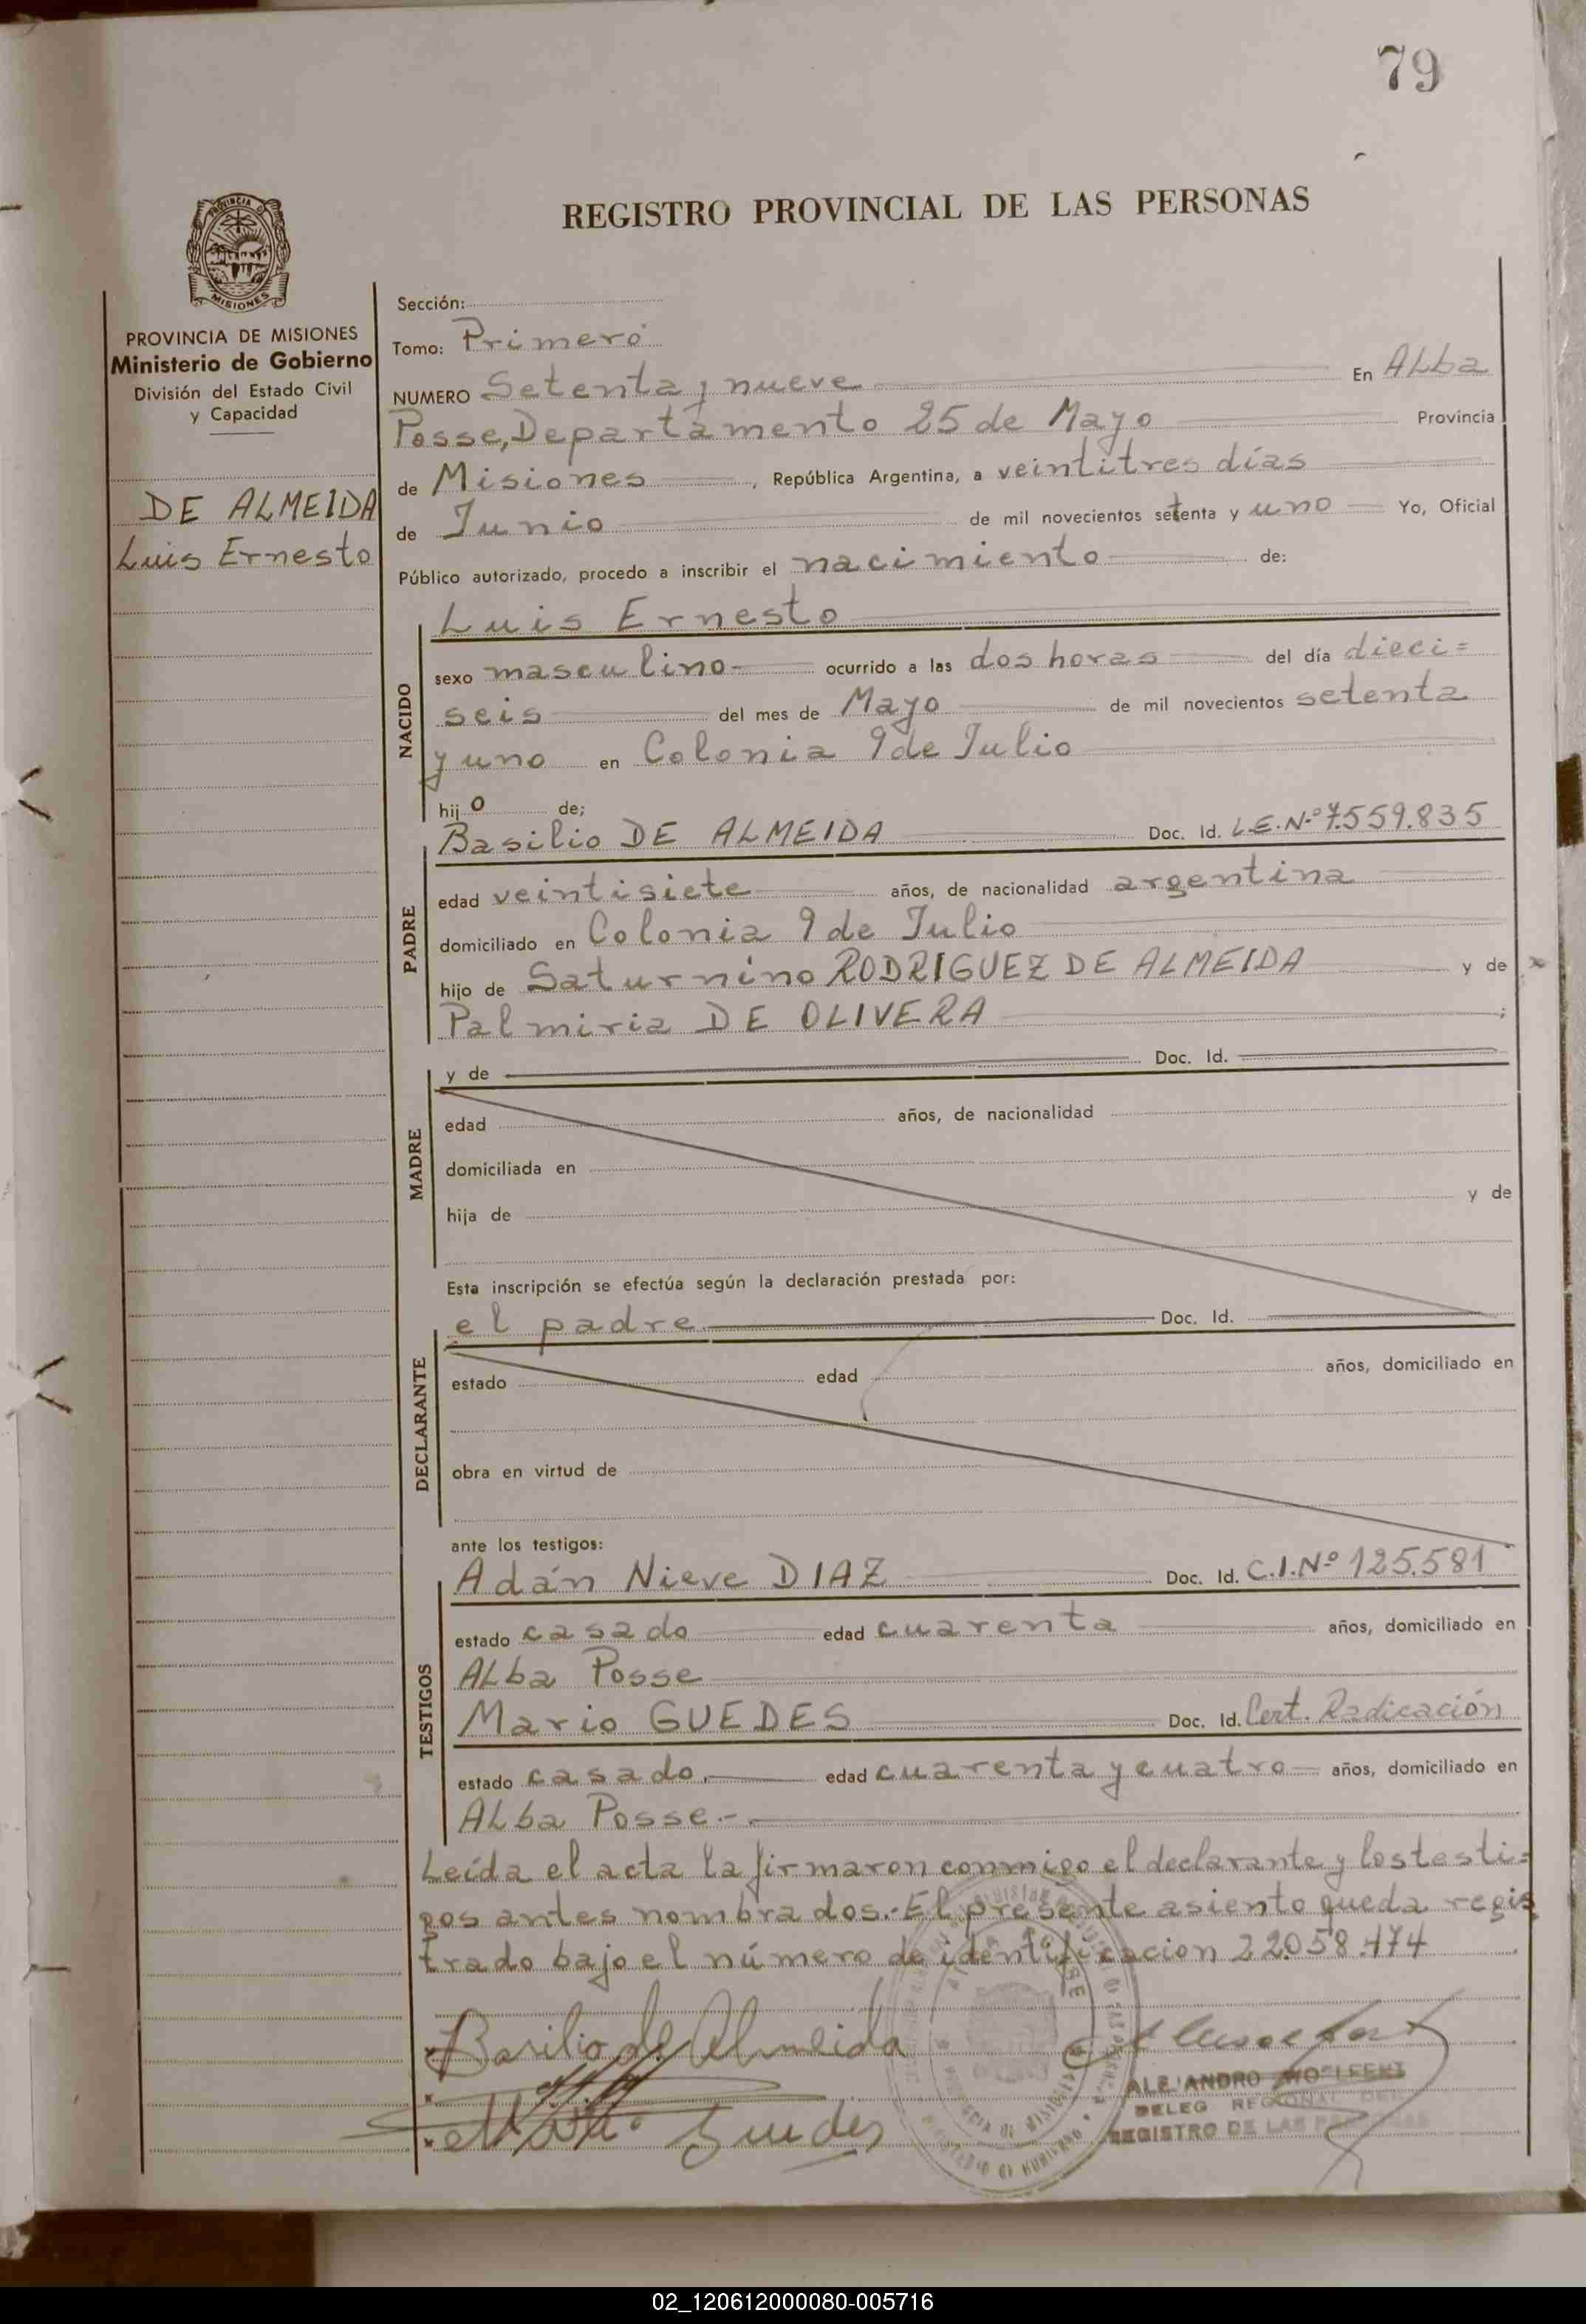 79
REGISTRO PROVINCIAL DE LAS PERSONAS
PROVINCIA DE MISIONES
Ministerio de Gobierno
División del Estado Civil
y Capacidad
DE ALMEIDA
Luis Ernesto
Sección:
Tomo: Primero
NUMERO Setenta y nueve En ALba
Posse, Departamento 25 de Mayo Provincia
de Misiones, República Argentina, a veintitres días
de Junio de mil novecientos setenta y uno Yo, Oficial
Público autorizado, procedo a inscribir el nacimiento de:
NACIDO
Luis Ernesto
sexo masculino ocurrido a las dos horas del día dieci=
seis del mes de Mayo de mil novecientos setenta
y uno en Colonia 9 de Julio
hijo de;
PADRE
Basilio DE ALMEIDA Doc. Id. L.E.Nº 7.559.835
edad veintisiete años, de nacionalidad argentina
domiciliado en Colonia 9 de Julio
hijo de Saturnino RODRIGUEZ DE ALMEIDA y de
Palmiria DE OLIVERA ;
MADRE
y de Doc. Id.
edad años, de nacionalidad
domiciliada en
hija de y de
Esta inscripción se efectúa según la declaración prestada por:
el padre Doc. Id.
DECLARANTE
estado edad años, domiciliado en
obra en virtud de
ante los testigos:
TESTIGOS
Adán Nieve DIAZ Doc. Id. C.I.Nº 125.581
estado casado edad cuarenta años, domiciliado en
ALba Posse
Mario GUEDES Doc. Id. Cert. Radicación
estado casado. edad cuarenta y cuatro años, domiciliado en
ALba Posse.-
Leída el acta la firmaron conmigo el declarante y los testi=
gos antes nombrados.- El presente asiento queda regis
trado bajo el número de identificacion 22.058.474
Basilio de Almeida
Guedes
ALEJANDRO
DELEG REGIONAL DEL
REGISTRO DE LAS PERSONAS
02_120612000080-005716